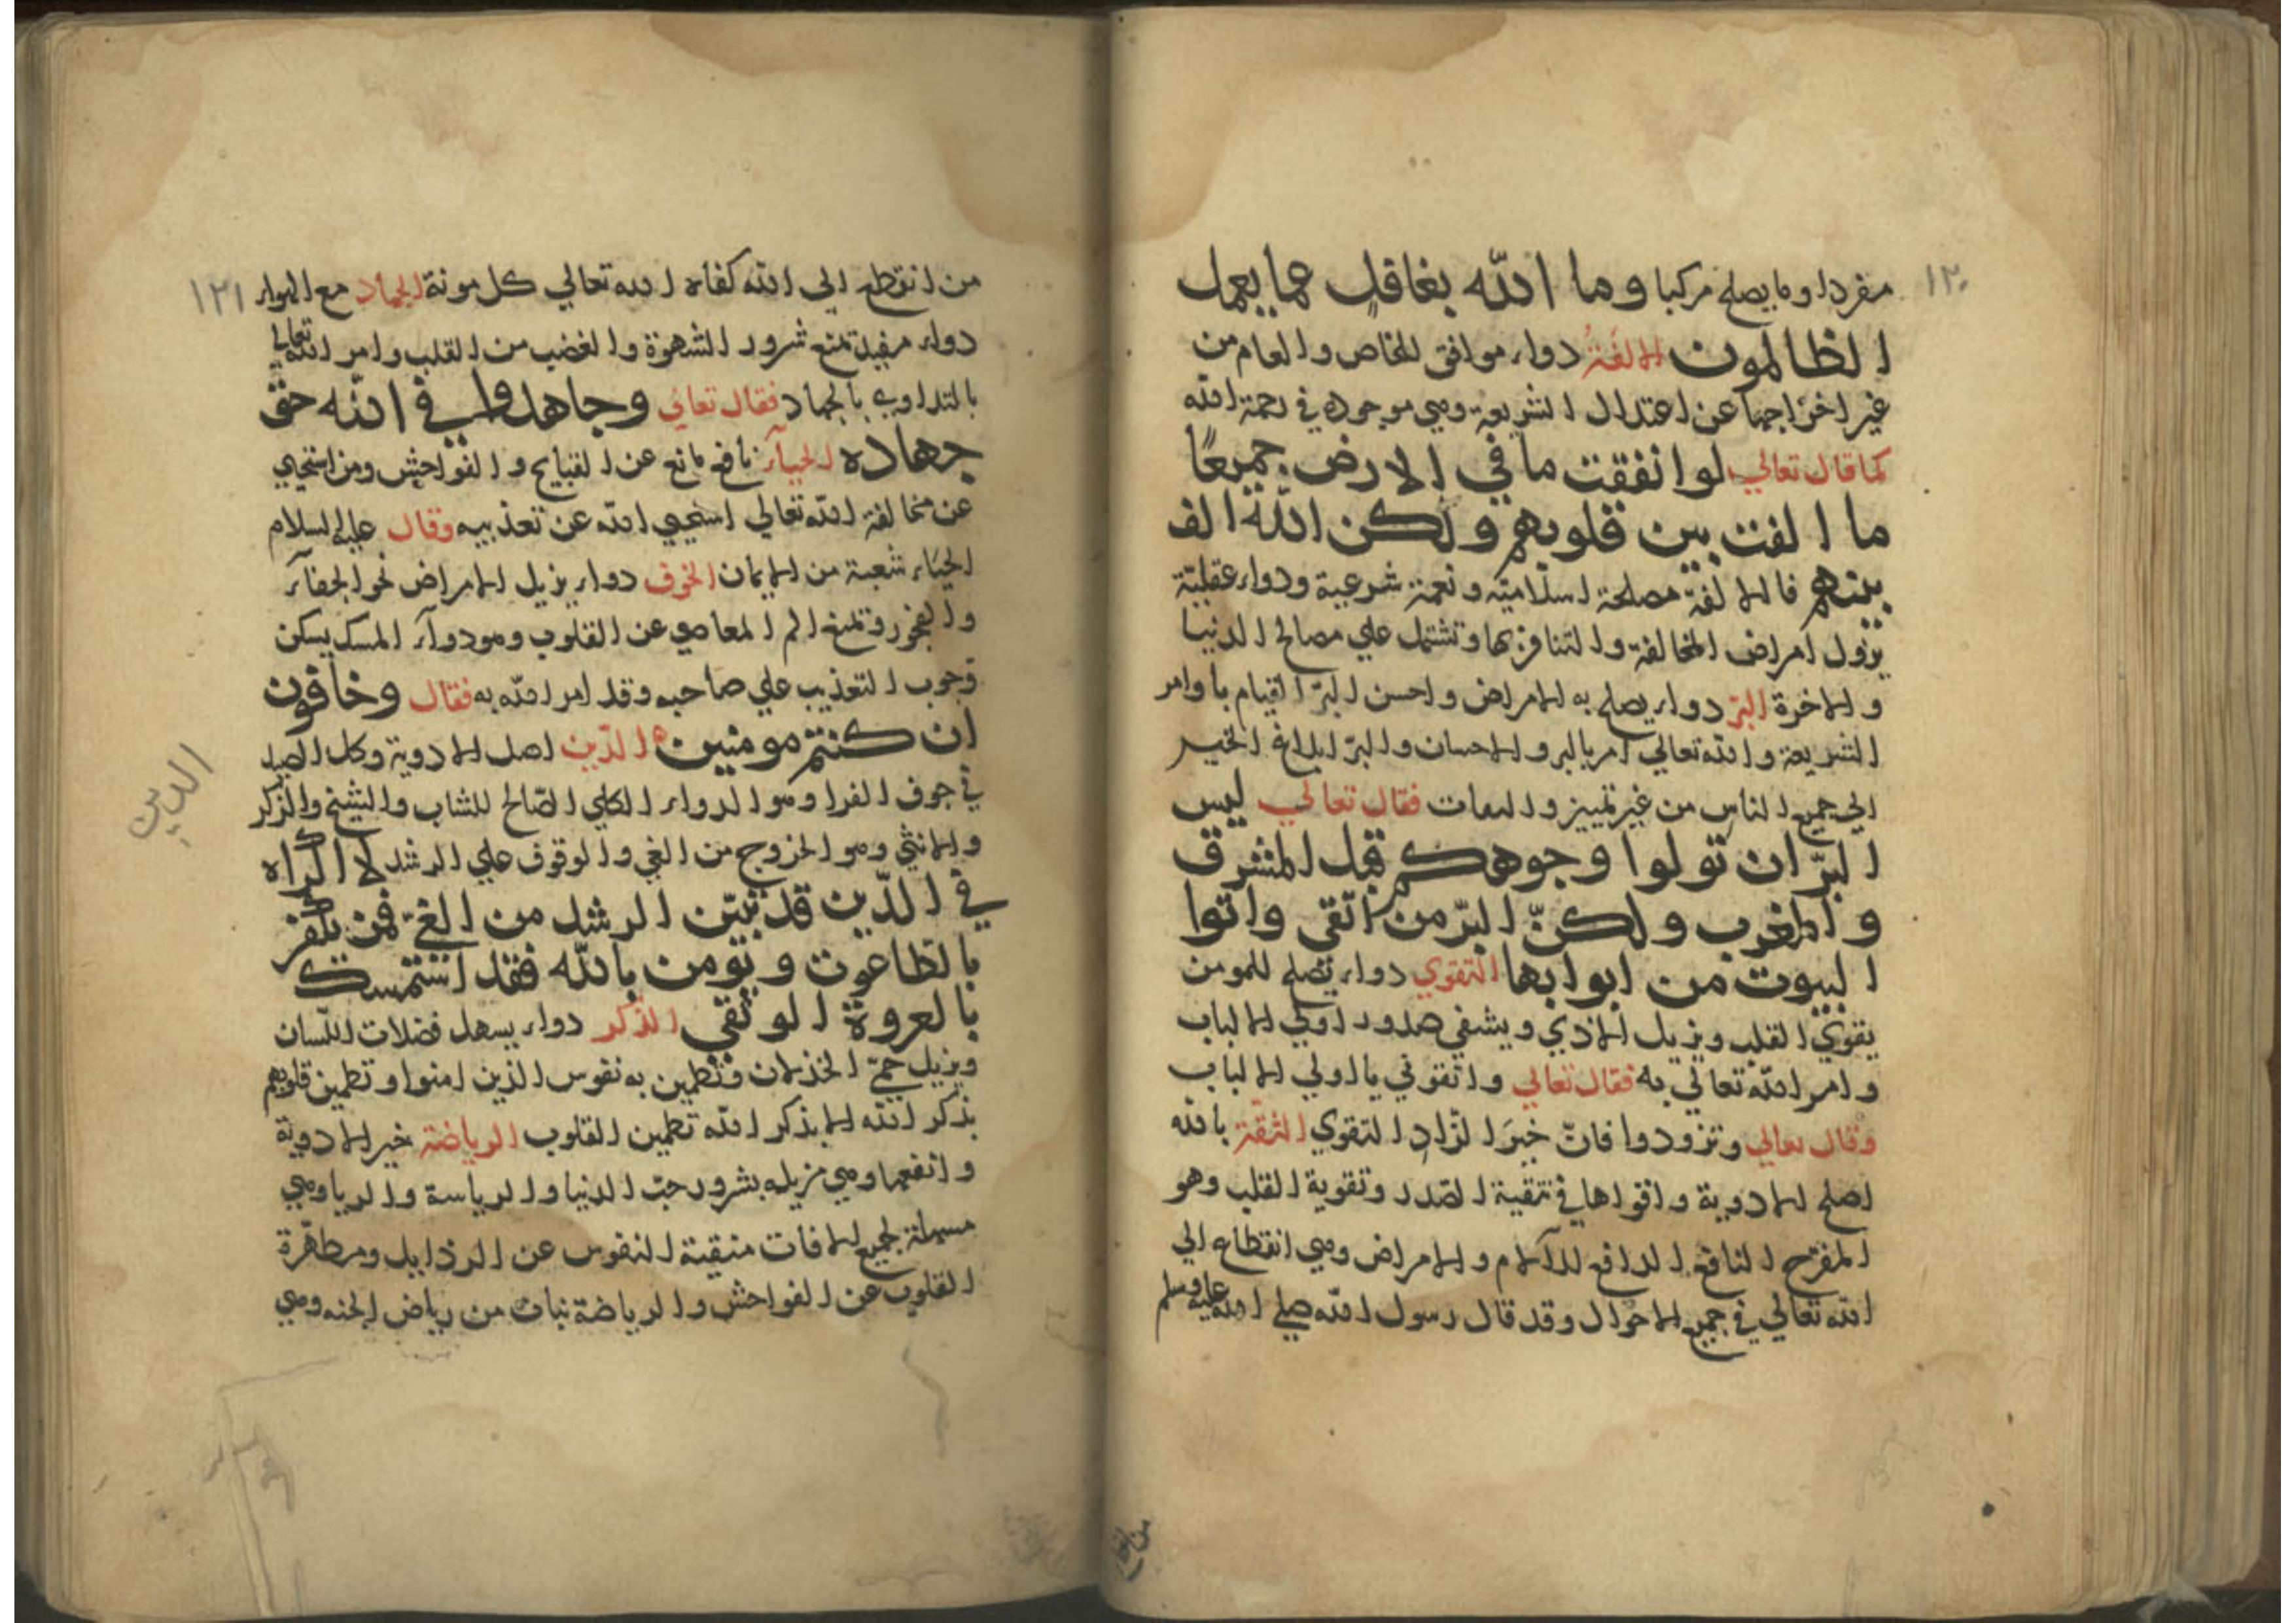 ١٢٠
مفردا وما يصلح مركبا وما الله بغافل عما يعمل
الظالمون الالفة دواء موافق للخاص والعام من
غير اخراجها عن اعتدال الشريعة وهي موجودة في رحمة الله
كما قال تعالي لو انفقت ما في الارض جميعًا
ما الفت بين قلوبهم ولكن الله الف
بينهم فالالفة مصلحة اسلامية ونعمة شرعية ودواء عقلية
يزول امراض المخالفة والتنافر بها وتشتمل علي مصالح الدنيا
والاخرة البرّ دواء يصلح به الامراض واحسن البرّ القيام باوامر
الشريعة والله تعالي امر بالبر والاحسان والبرّ ابلاغ الخير
الي جميع الناس من غير تمييز و فقال تعالي ليس
البرّ ان تولوا وجوهكم قبل المشرق
والمغرب ولكنّ البرّ من اتقي واتوا
البيوت من ابوابها التقوي دواء يصلح للمومن
يقوي القلب ويزيل الاذي ويشفي صدور اولي الالباب
وامر الله تعالي به فقال تعالي واتقوني يا اولي الالباب
وقال تعالي وتزودوا فانّ خيرَ الزاد التقوي الثقة بالله
اصلح الادوية واقواها في تنقية الصدر وتقوية القلب وهو
المفرّح النافع الدافع للآلام والامراض وهي انقطاع الي
الله تعالي في جميع الاحوال وقد قال رسول الله صلي الله عليه وسلم
١٢١
من انقطع الي الله كفاه الله تعالي كل مونة الجهاد مع الهواء
دواء مفيد تمنع شرور الشهوة والغضب من القلب وامر الله تعالي
بالتداوي بالجهاد فقال تعالي وجاهدوا في الله حق
جهاده الحياء نافع مانع عن القبايح والفواحش ومن استحيي
عن مخالفة الله تعالي استحيي الله عن تعذيبه وقال عليه السلام
الحياء شعبة من الايمان الخوف دواء يزيل الامراض نحو الجفاء
والفجور وتمنع الم المعاصي عن القلوب وهو دواء المسك يسكن
وجوب التعذيب علي صاحبه وقد امر الله به فقال وخافون
ان كنتم مومنين الدّين اصل الادوية وكل الصيد
في جوف الفرا وهو الدواء الكلي الصّالح للشاب والشيخ والذكر
والانثي وهو الخروج من الغي والوقوف علي الرشد لا اكراه
في الدّين قد تبيّن الرشد من الغي فمن يكفر
بالطاغوت ويومن بالله فقد استمسك
بالعروة الوثقي الذّكر دواء يسهل فضلات اللّسان
ويزيل حمّي الخذلان وتطمين به نفوس الذين امنوا وتطمين قلوبهم
بذكر الله الا بذكر الله تطمين القلوب الرياضة خير الادوية
وانفعها وهي مزيله بشرور حبّ الدنيا والرياسة والريا وهي
مسهلة لجميع الافات منيقية النفوس عن الرذايل ومطهّرة
القلوب عن الفواحش والرياضة نبات من رياض الجنه وهي
الدين